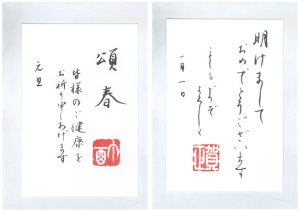 頌春
皆様のご健康を
お祈り申しあげます
元旦
明けまして
おめでとうございます
ことしもどうぞ
よろしく
一月一日